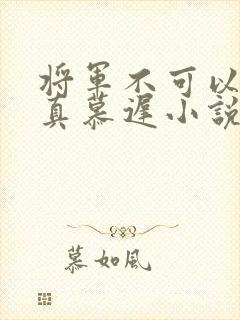 将军不可以
真慕遲小說
慕如風